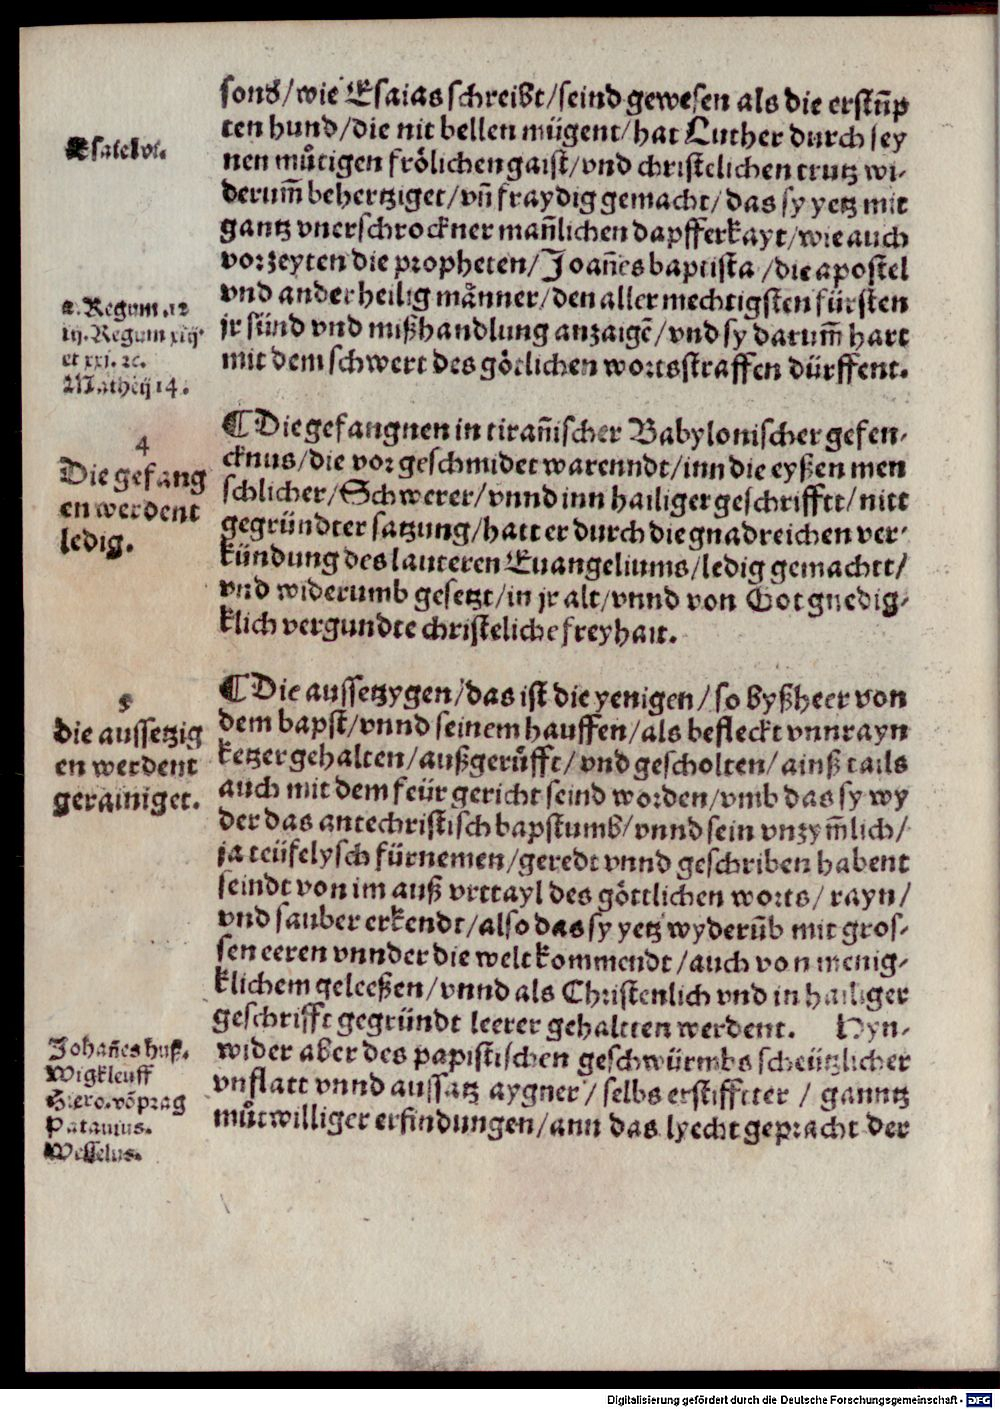 sons/wie Esaias schreibt/seind gewesen als die erstūp
ten hund/die nit bellen mügent/hat Luther durch sey
nen muͤtigen frölichen gaist/vnd christelichen trutz wi-
derum̄ behertziget/vn̄ fraydig gemacht/das sy yetz mit
gantz vnerschrockner man̄lichen dapfferkayt/wie auch
vorzeyten die propheten/Joan̄es baptista/die apostel
vnd ander heilig maͤnner/den aller mechtigsten fürsten
jr sünd vnd mißhandlung anzaigē/vnd sy darum̄ hart
mit dem schwert des götlichen worts straffen dürffent.
Esaie lvi.
2. Regum .12
iij. Regum xiij
et xxi. ⁊c.
Mathei 14.
¶ Die gefangnen in tiran̄ischer Babylonischer gefen-
cknus/die vor geschmidet warenndt/inn die eyßen men
schlicher/Schwerer/vnnd inn hailiger geschrifftt/nitt
gegründter satzung/hatt er durch die gnadreichen ver-
kündung des lauteren Euangeliums/ledig gemachtt/
vnd widerumb gesetzt/in jr alt/vnnd von Got gnedig-
klich vergundte christeliche freyhait.
4
Die gefang
en werdent
ledig.
¶ Die aussetzygen/das ist die yenigen/so byßheer von
dem bapst/vnnd seinem hauffen/als befleckt vnnrayn
ketzer gehalten/außgeruͤfft/vnd gescholten/ainß tails
auch mit dem feür gericht seind worden/vmb das sy wy
der das antechristisch bapstumb/vnnd sein vnzym̄lich/
ja teüfelysch fürnemen/geredt vnnd geschriben habent
seindt von im auß vrttayl des göttlichen worts/rayn/
vnd sauber erkendt/also das sy yetz wyderūb mit gros-
sen eeren vnnder die welt kommendt/auch von menig-
klichem geleeßen/vnnd als Christenlich vnd in hailiger
geschrifft gegründt leerer gehaltten werdent. Hyn-
wider aber des papistischen geschwürmbs scheützlicher
vnflatt vnnd aussatz aygner/selbs erstifftter/ganntz
muͤtwilliger erfindungen/ann das lyecht gepracht der
5
die aussetzig
en werdent
gerainiget.
Johan̄es huß.
Wigkleuff
Hiero. vō prag
Patauius.
Wesselus.
Digitalisierung gefördert durch die Deutsche Forschungsgemeinschaft - DFG